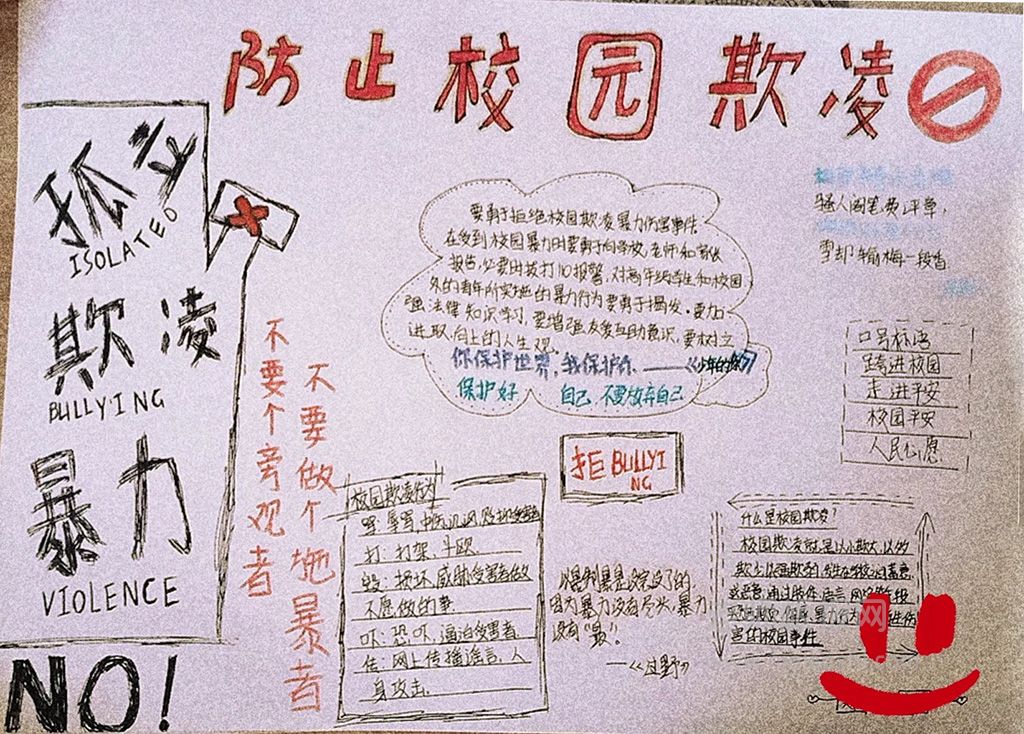 防止校园欺凌
孤立
ISOLATED
欺凌
BULLYING
暴力
VIOLENCE
NO!
不要做个施暴者
不要个旁观者
要勇于拒绝校园欺凌暴力伤害事件
在受到校园暴力时要勇于向学校,老师和家长
报告,必要时拨打110报警,对高年级学生和校园
外的青年所实施的暴力行为要勇于揭发·要加
强法律知识学习,要增强友爱互助意识,要树立
进取,向上的人生观.
你保护世界,我保护你.——《少年的你》
保护好 自己 不要放弃自己
骚人阁笔费评章,
雪却输梅一段香
口号标语
跨进校园
走进平安
校园平安
人民心愿
拒BULLYI
NG
校园欺凌行为
骂:辱骂,中伤,讥讽,贬抑受害者
打:打架、斗殴.
毁:损坏,威胁受害者做
不愿做的事.
吓:恐吓,逼迫受害者.
传:网上传播谣言,人
身攻击.
以暴制暴是
因为暴力没有尽头,暴力
没有“最”!
什么是校园欺凌?
校园欺凌就是以小欺大,以多
欺少,
或恶意,通过肢体,语言,网络等
暴力行为
害的校园事件
网